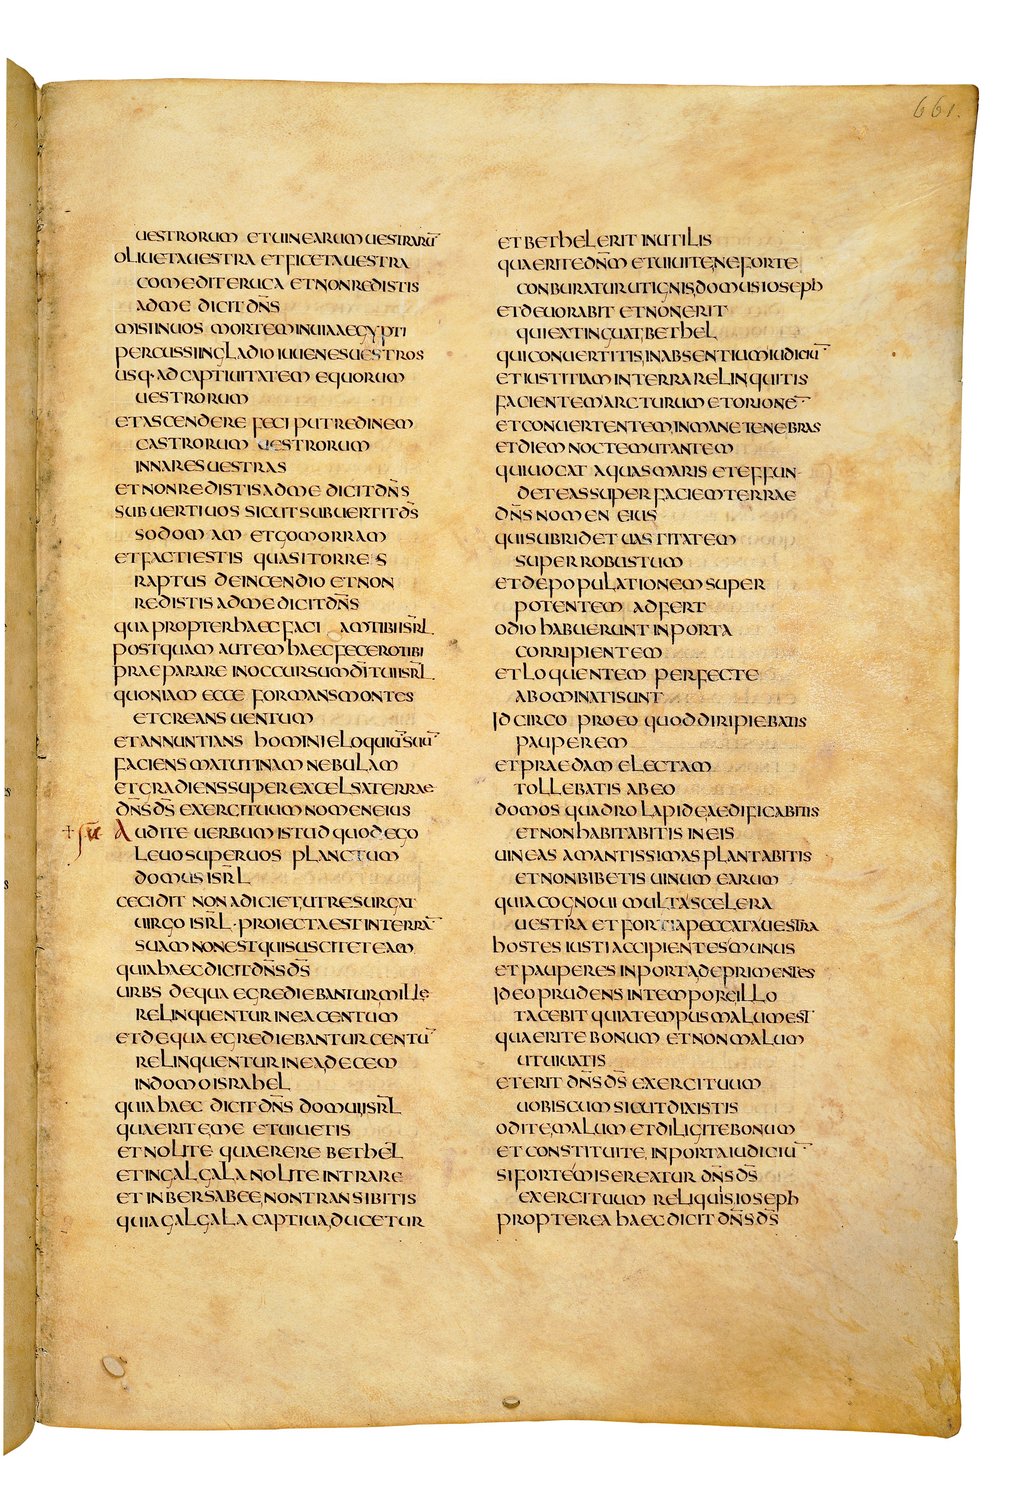 661.
uestrorum et uinearum uestrarū
oliueta uestra et ficeta uestra
comedit eruca et non redistis
ad me dicit dn̄s
misi in uos mortem in uia aegypti
percussi in gladio iuuenes uestros
usq· ad captiuitatem equorum
uestrorum
et ascendere feci putredinem
castrorum uestrorum
in nares uestras
et non redistis ad me dicit dn̄s
subuerti uos sicut subuertit d̄s
sodomam et gomorram
et facti estis quasi torres
raptus de incendio et non
redistis ad me dicit dn̄s
quapropter haec faciam tibi isr̄l
postquam autem haec fecero tibi
praeparare in occursum dī tui isr̄l
quoniam ecce formans montes
et creans uentum
et annuntians homini eloquiū suū
faciens matutinam nebulam
et gradiens super excelsa terrae
dn̄s d̄s exercituum nomen eius
Audite uerbum istud quod ego
leuo super uos planctum
domus isr̄l
cecidit non adiciet, ut resurgat
uirgo isr̄l · proiecta est in terrā
suam non est qui suscitet eam
quia haec dicit dn̄s d̄s
urbs de qua egrediebantur, mille
relinquentur in ea centum
et de qua egrediebantur centū
relinquentur in ea, decem
in domo israhel
quia haec dicit dn̄s domui, isr̄l
quaerite, me et uiuetis
et nolite quaerere bethel
et in galgala nolite intrare
et in bersabee, non transibitis
quia galgala captiua, ducetur
et bethel erit inutilis
quaerite dn̄m et uiuite, ne forte
conburatur ut ignis, domus ioseph
et deuorabit et non erit
qui extinguat, bethel
qui conuertitis, in absentium iudiciū
et iustitiam in terra relinquitis
facientem arcturum et orionē
et conuertentem, in mane tenebras
et diem nocte mutantem
qui uocat aquas maris et effun
det eas super faciem terrae
dn̄s nomen eius
qui subridet uastitatem
super robustum
et depopulationem super
potentem adfert
odio habuerunt in porta
corripientem
et loquentem perfecte
abominati sunt
Idcirco pro eo quod diripiebatis
pauperem
et praedam electam
tollebatis ab eo
domos quadro lapide, aedificabitis
et non habitabitis in eis
uineas amantissimas plantabitis
et non bibetis uinum earum
quia cognoui multa scelera
uestra et fortia peccata uestra
hostes iusti accipientes munus
et pauperes in porta, deprimentes
Ideo prudens in tempore illo
tacebit quia tempus malum est
quaerite bonum et non malum
ut uiuatis
et erit dn̄s d̄s exercituum
uobiscum sicut dixistis
odite, malum et diligite bonum
et constituite, in porta iudiciū
si forte misereatur dn̄s d̄s
exercituum reliquiis, ioseph
propterea haec dicit dn̄s d̄s